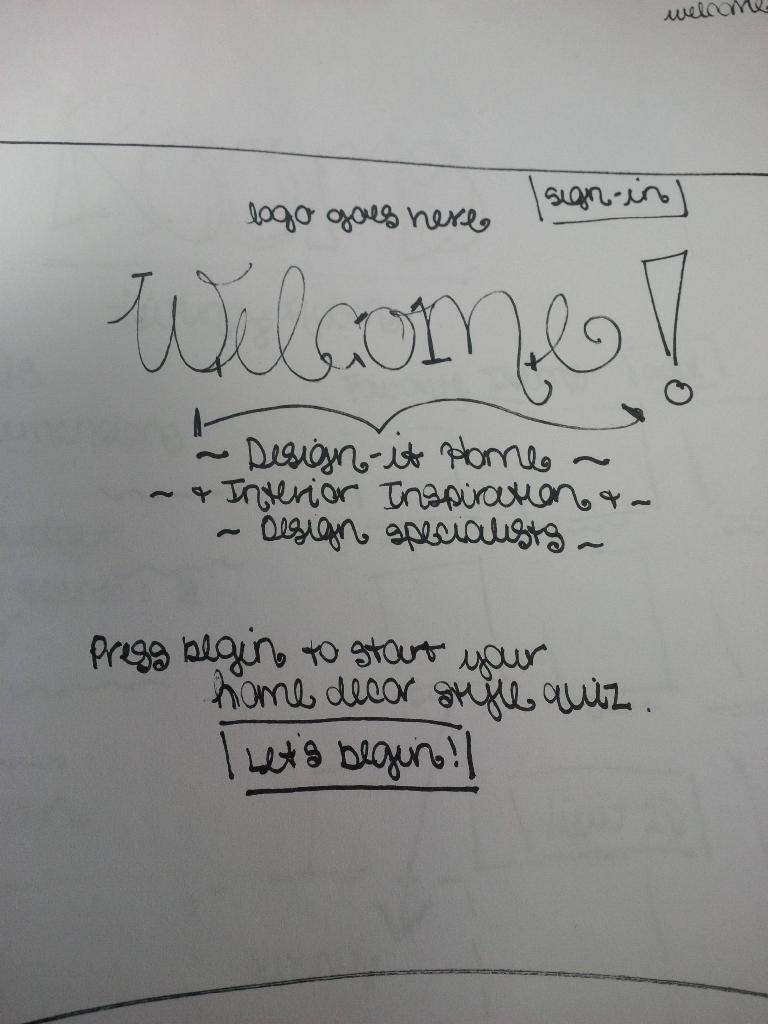 welcome
logo goes here
sign-in
Welcome!
~ Design-it Home ~
~ + Interior Inspiration + ~
~ Design specialists ~
Press begin to start your
home decor style quiz.
Let's begin!